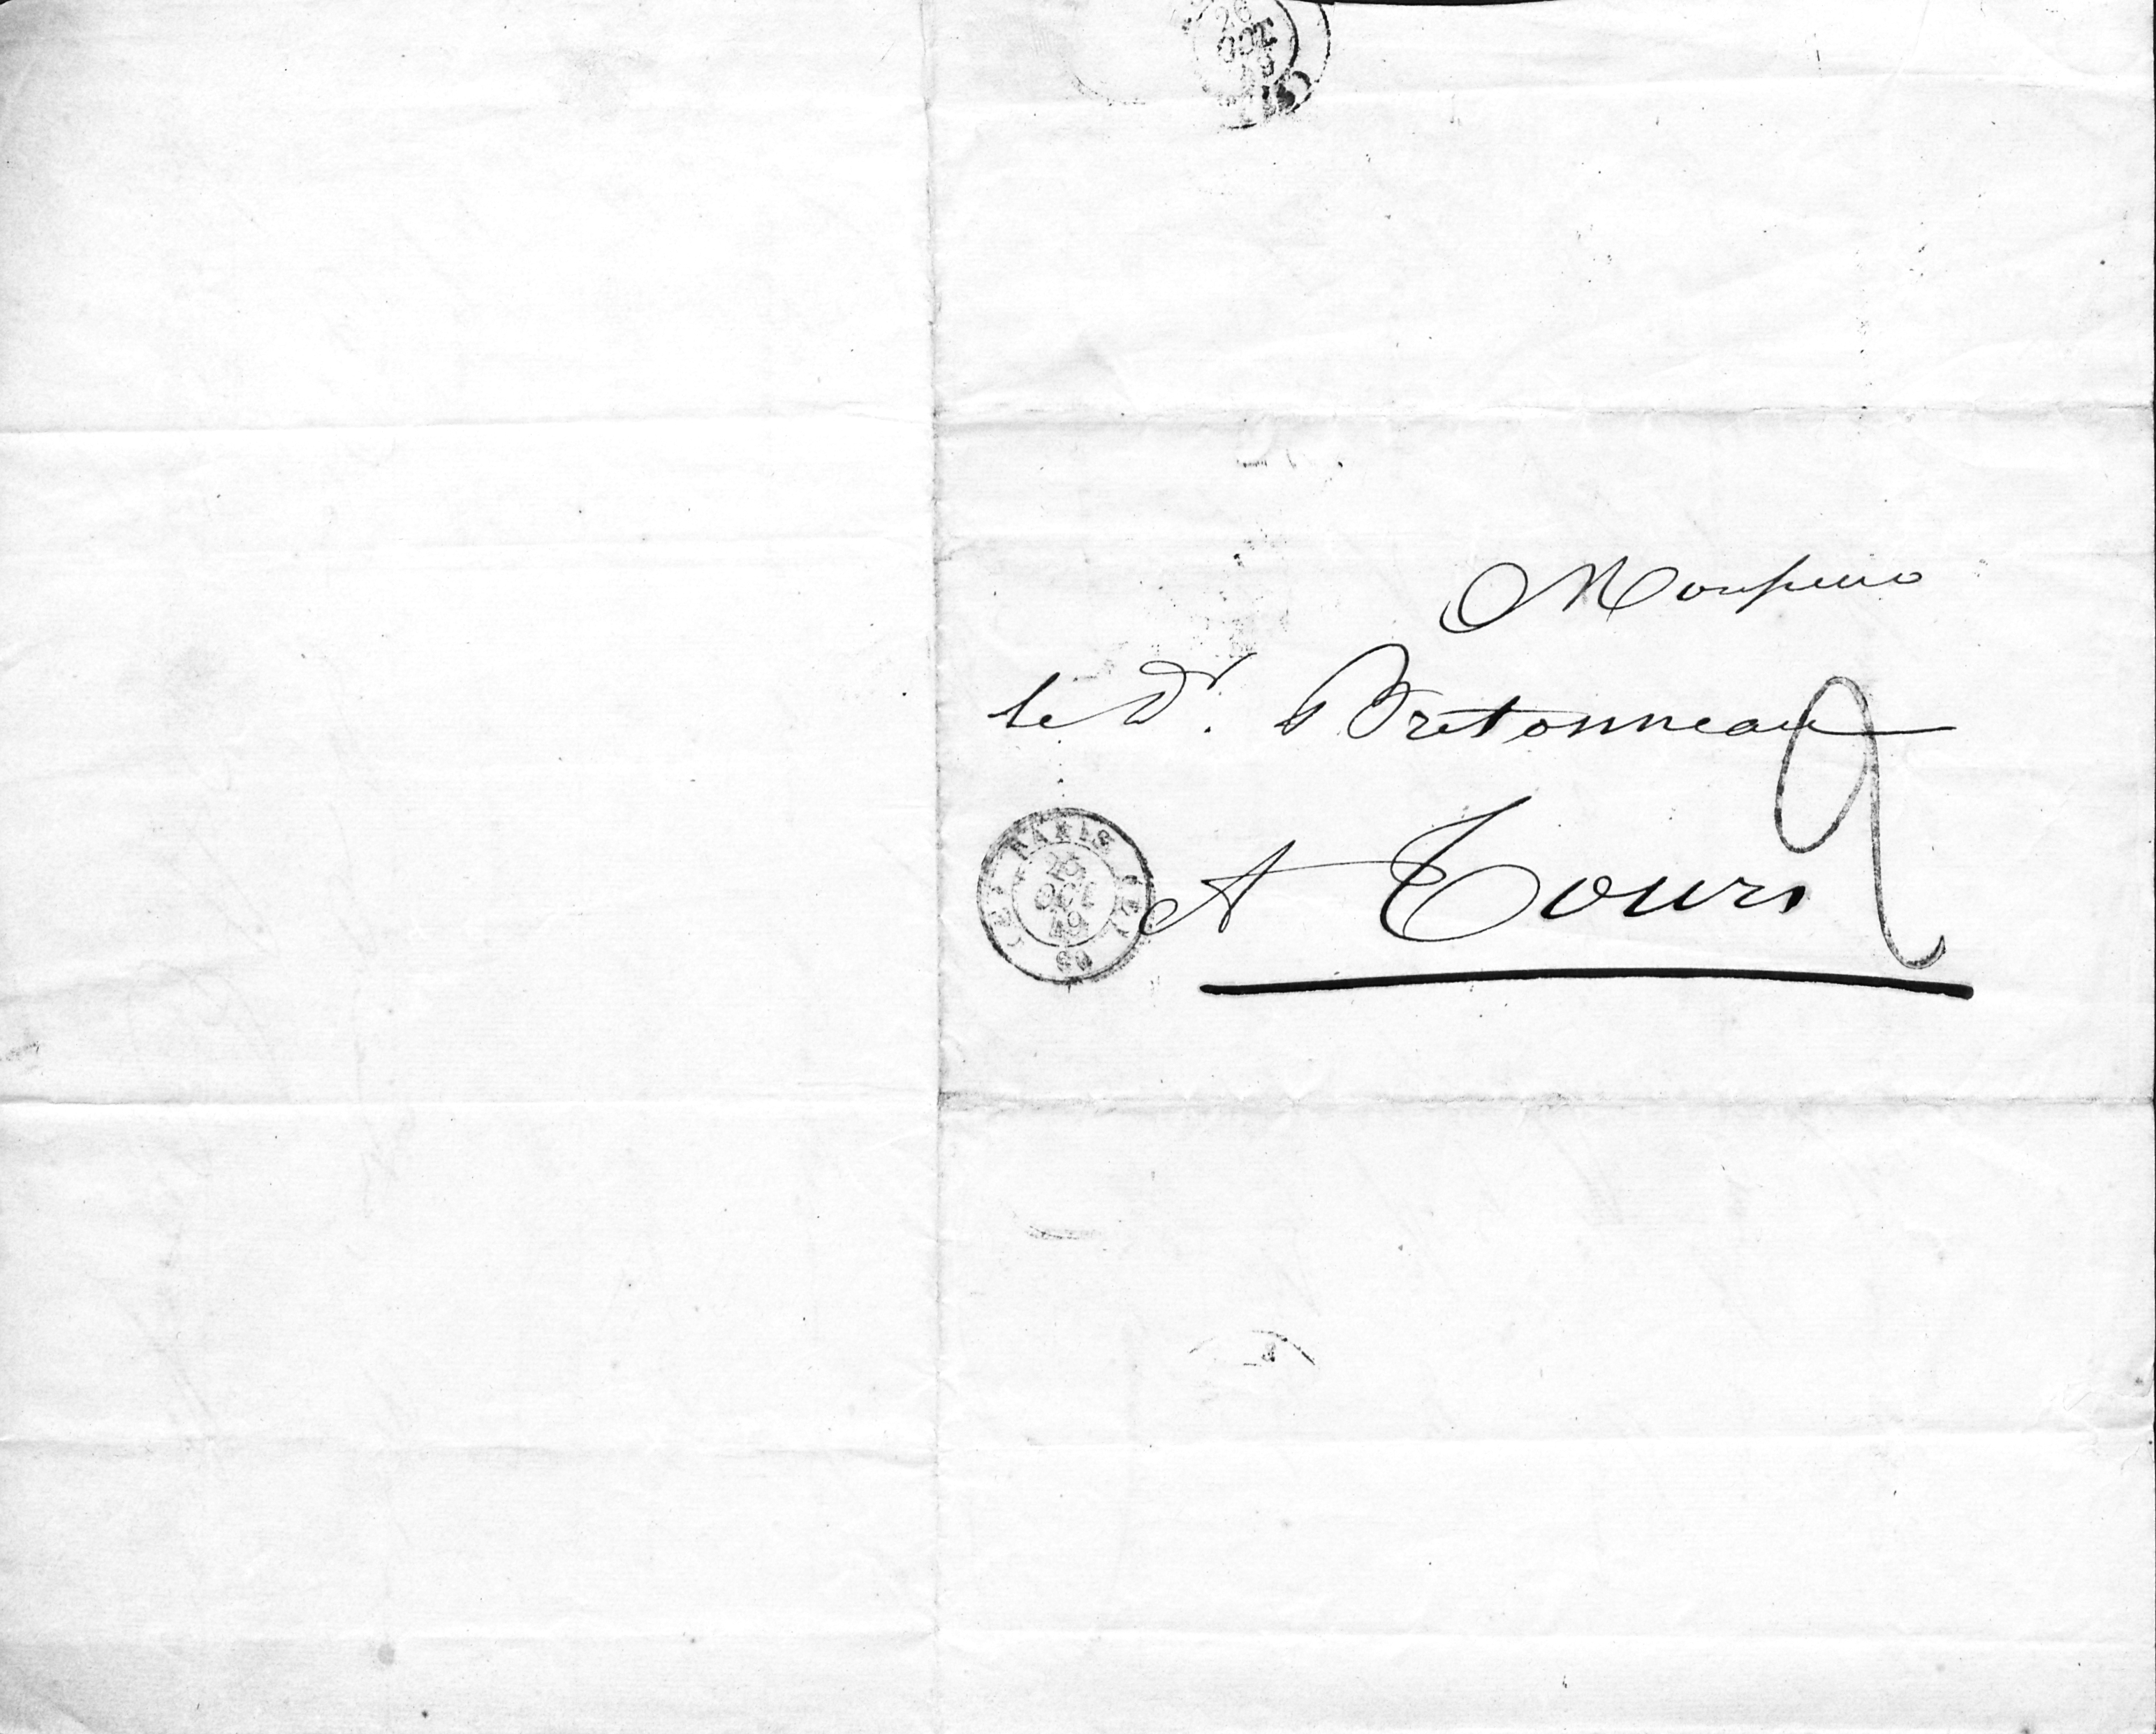 26
OCT.
49
Monsieur
le Dr. Bretonneau
2
A Tours
PARIS
25
OCT.
49
60